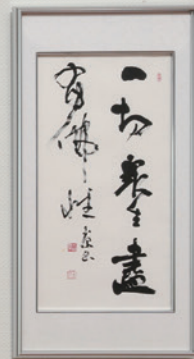 一切衆生盡
有佛性